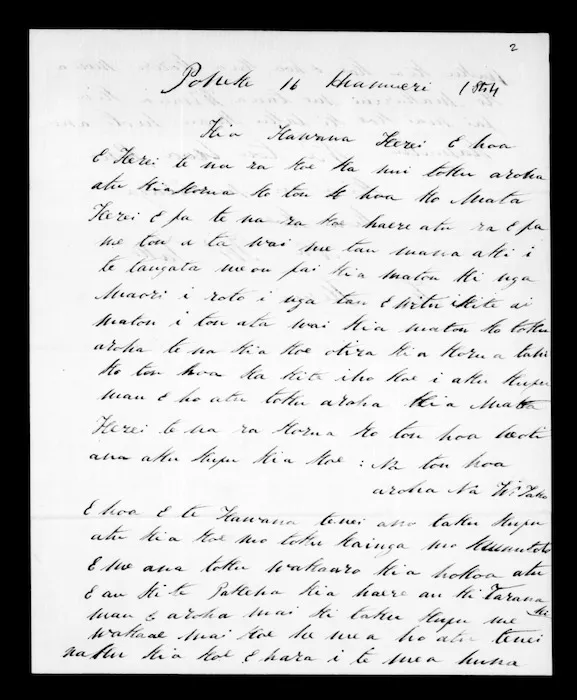 2
Poneke 16 Hanueri 1854
Kia Kawana Kerei E hoa
E Kerei te na ra koe ka nui toku aroha
atu kia korua ko ton hoa ko Mata
Kerei E pa te na ra koe haere atu ra E pa
me tou a ta wai me tau mana aki i
te tangata me ou pai kia matou ki nga
Maori i roto i nga tau E witu i kite ai
matou i tou ata wai kia matou ko toku
aroha te na kia koe otira kia korua tahi
ko tou hoa ka kite iho koe i aku kupu
mau E ho atu toku aroha kia Mata
Kerei te na ra korua ko tou hoa heoti
ana aku kupu kia koe : Na tou hoa
aroha Na Wi Tako
E hoa E te Kawana tenei ano taku kupu
atu kia koe mo toku kainga mo Kumutoto
E mea ana toku wakaaro kia hokoa atu
E au ki te Pakeha kia haere au ki Tarana
ki
mau E aroha mai ki taku kupu me
wakaae mai koe he mea ho atu tenei
naku kia koe E hara i te mea huna